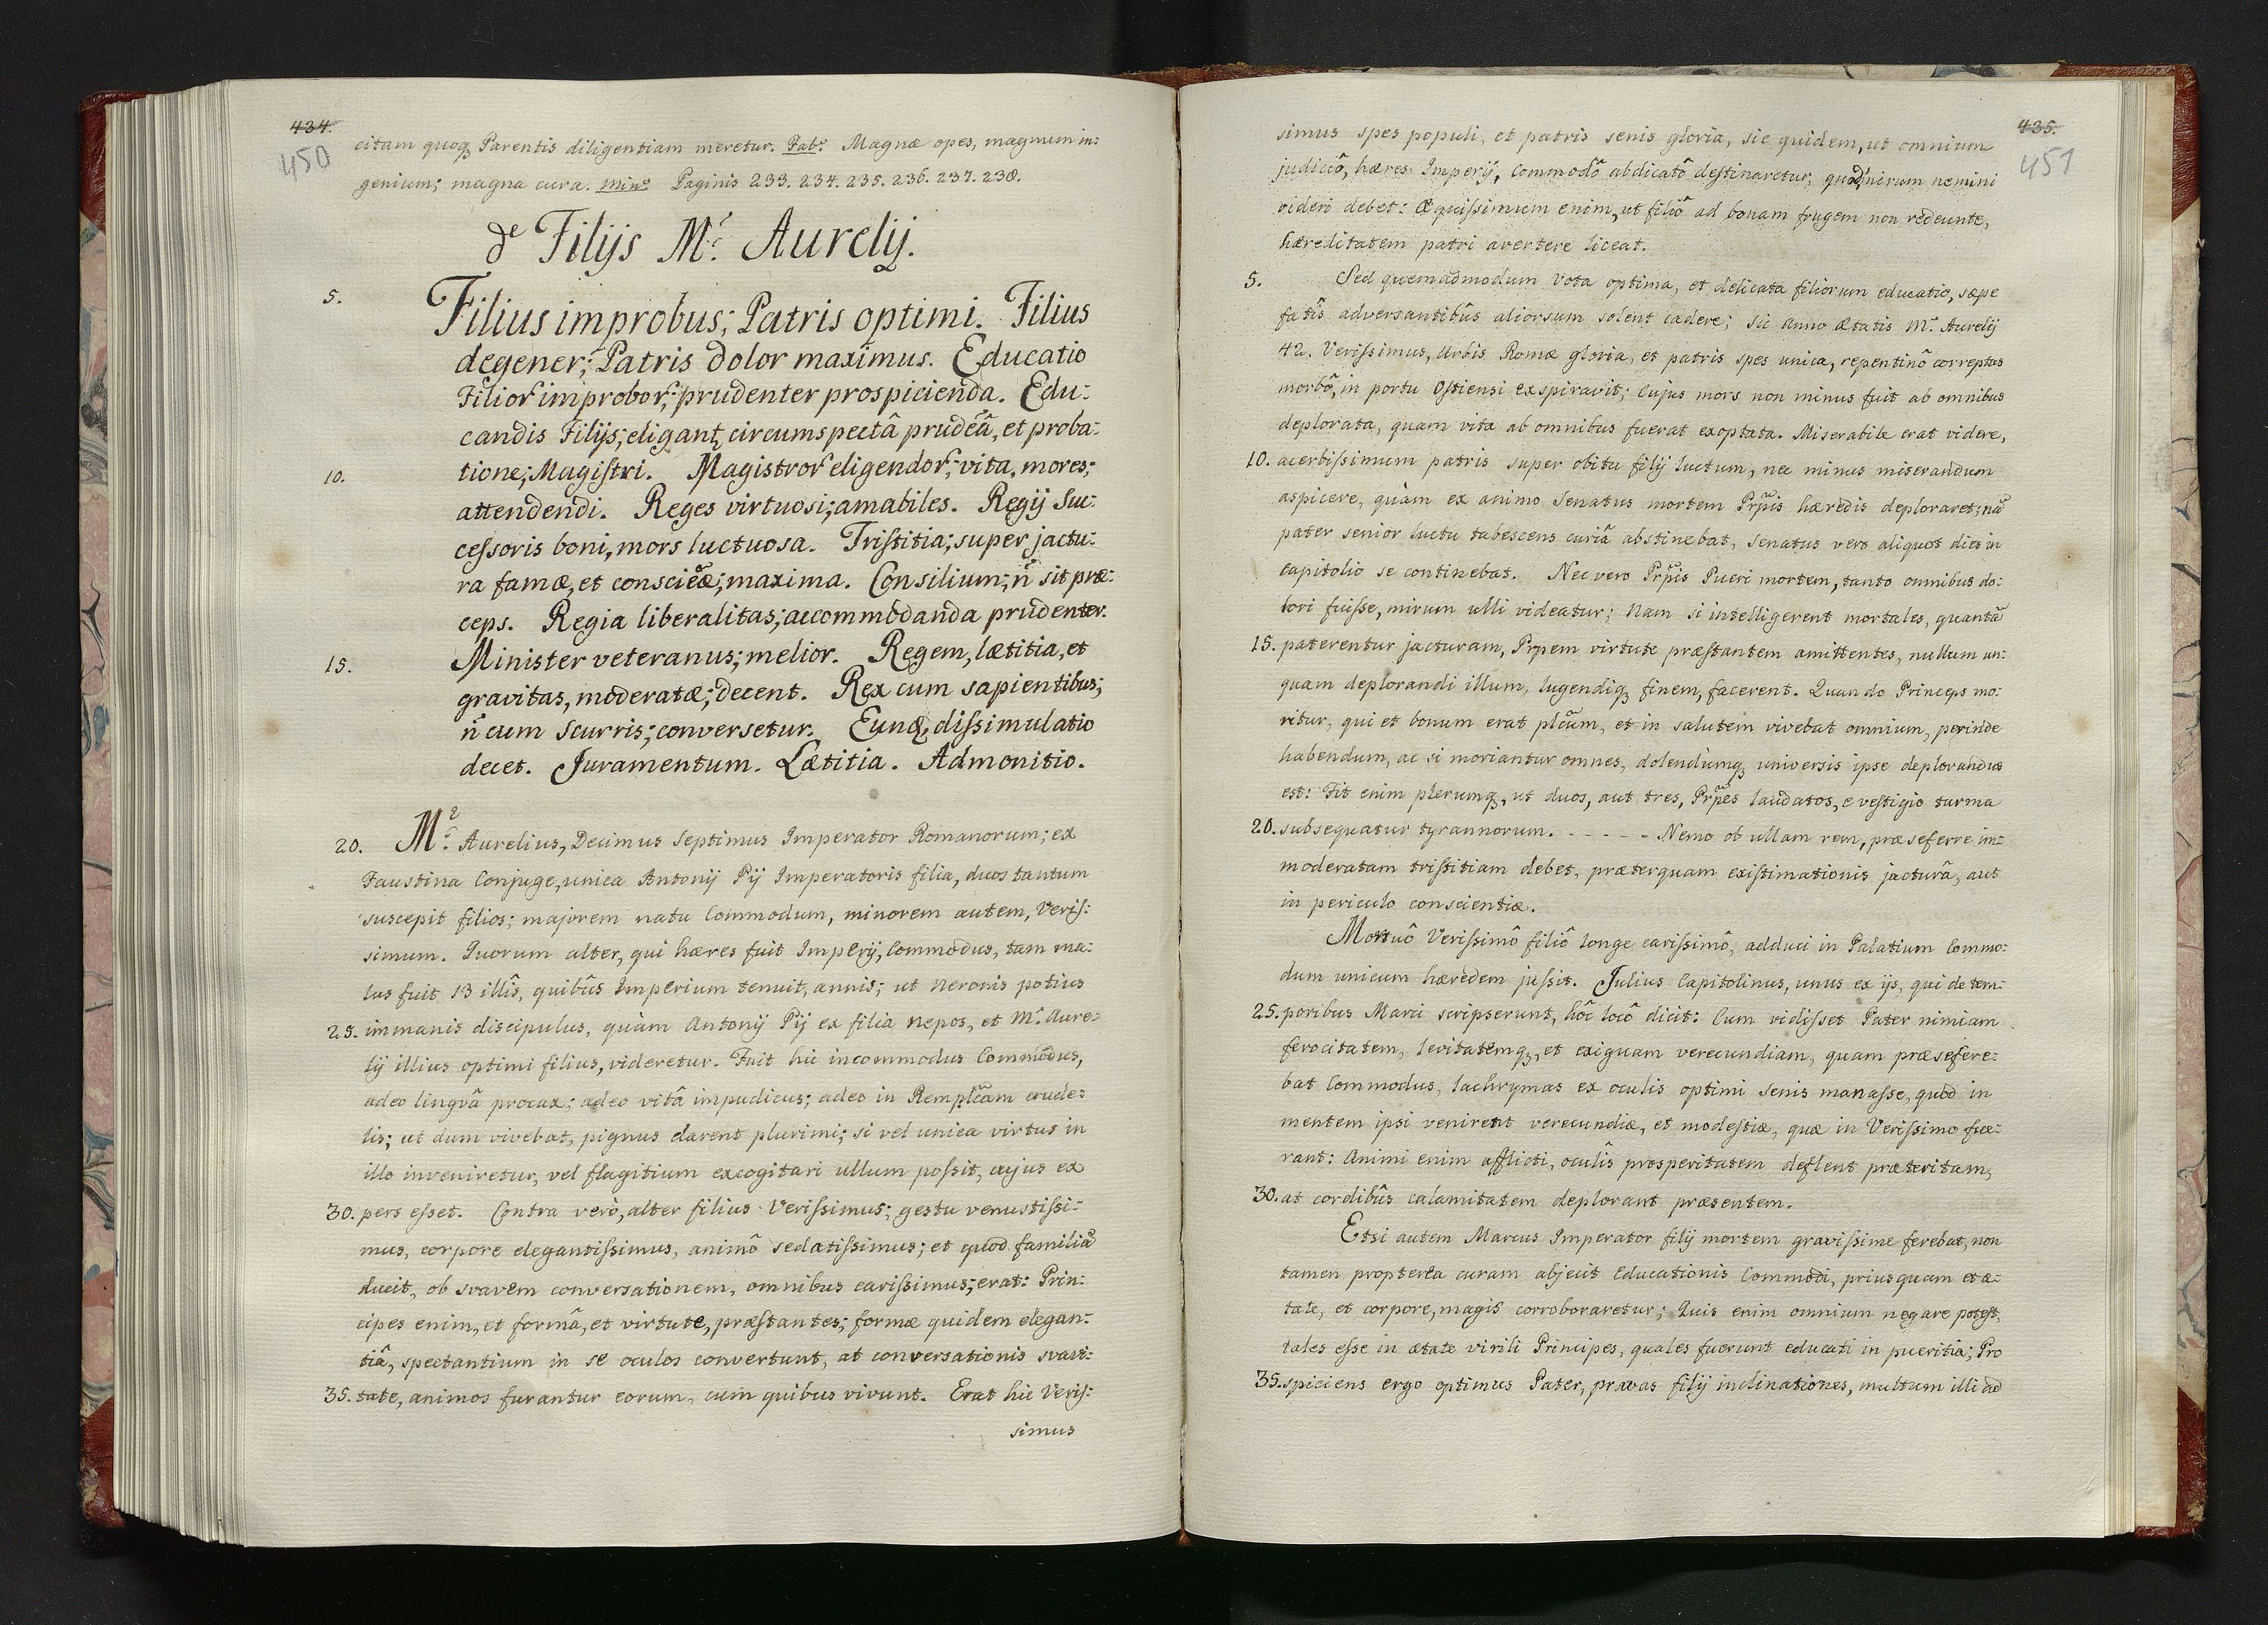 434.
450
citam quoq; Parentis diligentiam meretur. Fabr. Magnæ opes, magnum in:
genium; magna cura. Minr. Paginis 233. 234. 235. 236. 237. 238.
de Filijs Mci. Aurelij.
5. Filius improbus; Patris optimi. Filius
degener; Patris dolor maximus. Educatio
Filior improbor; prudenter prospicienda. Edu:
candis Filijs; eligant circumspectâ prudẽâ, et proba:
10. tione; Magistri. Magistror eligendor; vita, mores;
attendendi. Reges virtuosi; amabiles. Regij Suc:
cessoris boni, mors luctuosa. Tristitia; super jactu:
ra famæ, et consciẽæ; maxima. Consilium; ñ sit præ:
ceps. Regia liberalitas; accommodanda prudenter.
15. Minister veteranus; melior. Regem, lætitia, et
gravitas, moderatæ; decent. Rex cum sapientibus;
ñ cum scurris; conversetur. Eunq; dissimulatio
decet. Juramentum. Lætitia. Admonitio.
20. Mc. Aurelius, Decimus Septimus Imperator Romanorum; ex
Faustina Conjuge, unica Antonij Pij Imperatoris filia, duos tantum
suscepit filios; majorem natu Commodum, minorem autem, Veris:
simum. Quorum alter, qui hæres fuit Imperij, Commodus, tam ma:
lus fuit 13 illîs, quibûs Imperium tenuit, annis; ut Neronis potius
25. immanis discipulus, quàm Antonij Pij ex filia nepos, et Mc. Aure:
lij illius optimi filius, videretur. Fuit hic incommodus Commodus,
adeo linguâ procax; adeo vitâ impudicus; adeo in Remplcãm crude:
lis; ut dum vivebat, pignus darent plurimi; si vel unica virtus in
illo inveniretur, vel flagitium excogitari ullum possit, cujus ex
30. pers esset. Contra verò, alter filius Verissimus; gestu venustissi:
mus, corpore elegantissimus, animô sedatissimus; et quod familiã
ducit, ob svavem conversationem, omnibus carissimus; erat: Prin:
cipes enim, et formâ, et virtute, præstantes; formæ quidem elegan:
tiâ, spectantium in se oculos convertunt, at conversationis svavi:
35. tate, animos furantur eorum, cum quibus vivunt. Erat hic Veris:
simus
435.
451
simus spes populi, et patris senis gloria, sic quidem, ut omnium
judiciô, hæres Imperij, Commodô abdicatô destinaretur, quod mirum nemini
videri debet: Æquissimum enim, ut filiô ad bonam frugem non redeunte,
hæreditatem patri avertere liceat.
5. Sed quemadmodum vota optima, et delicata filiorum educatio, sæpe
fatîs adversantibûs aliorsum solent cadere; sic anno ætatis Mc. Aurelij
42. Verissimus, Urbis Romæ gloria, et patris spes unica, repentinô correptus
morbô, in portu Ostiensi exspiravit; Cujus mors non minus fuit ab omnibus
deplorata, quam vita ab omnibus fuerat exoptata. Miserabile erat videre,
10. acerbissimum patris super obitu filij luctum, nec minus miserandum
aspicere, quàm ex animo Senatus mortem Prpĩs hæredis deploraret; nã
pater senior luctu tabescens curiâ abstinebat, Senatus vero aliquot dies in
capitolio se continebat. Nec vero Prpĩs Pueri mortem, tanto omnibus do:
lori fuisse, mirum ulli videatur; Nam si intelligerent mortales, quantã
15. paterentur jacturam, Prpem virtute præstantem amittentes, nullum un:
quam deplorandi illum, lugendiq; finem, facerent. Quando Princeps mo:
ritur, qui et bonum erat plcũm, et in salutem vivebat omnium, perinde
habendum, ac si moriantur omnes, dolendùmq; universis ipse deplorandus
est: Fit enim plerumq;, ut duos, aut tres, Prpẽs laudatos, e vestigio turma
20. subsequatur tyrannorum. - - - - - Nemo ob ullam rem, præseferre im:
moderatam tristitiam debet, præterquam existimationis jacturâ, aut
in periculo conscientiæ.
Mortuô Verissimô filiô longe carissimô, adduci in Palatium Commo:
dum unicum hæredem jussit. Julius Capitolinus, unus ex ijs, qui de tem:
25. poribus Marci scripserunt, hôc locô dicit: Cum vidisset Pater nimiam
ferocitatem, levitatemq;, et exiguam verecundiam, quam præsefere:
bat Commodus, lachrymas ex oculis optimi senis manasse, quod in
mentem ipsi venirent verecundiæ, et modestiæ, quæ in Verissimo fue:
rant: Animi enim afflicti, oculîs prosperitatem deflent præteritam,
30. at cordibûs calamitatem deplorant præsentem.
Etsi autem Marcus Imperator filij mortem gravissime ferebat, non
tamen propterea curam abjecit educationis Commodi, priusquam etæ:
tate, et corpore, magis corroboraretur; Quis enim omnium negare potest,
tales esse in ætate virili Principes, quales fuerunt educati in pueritia; Pro
35. spiciens ergo optimus Pater, pravas filij inclinationes, multum illi ad